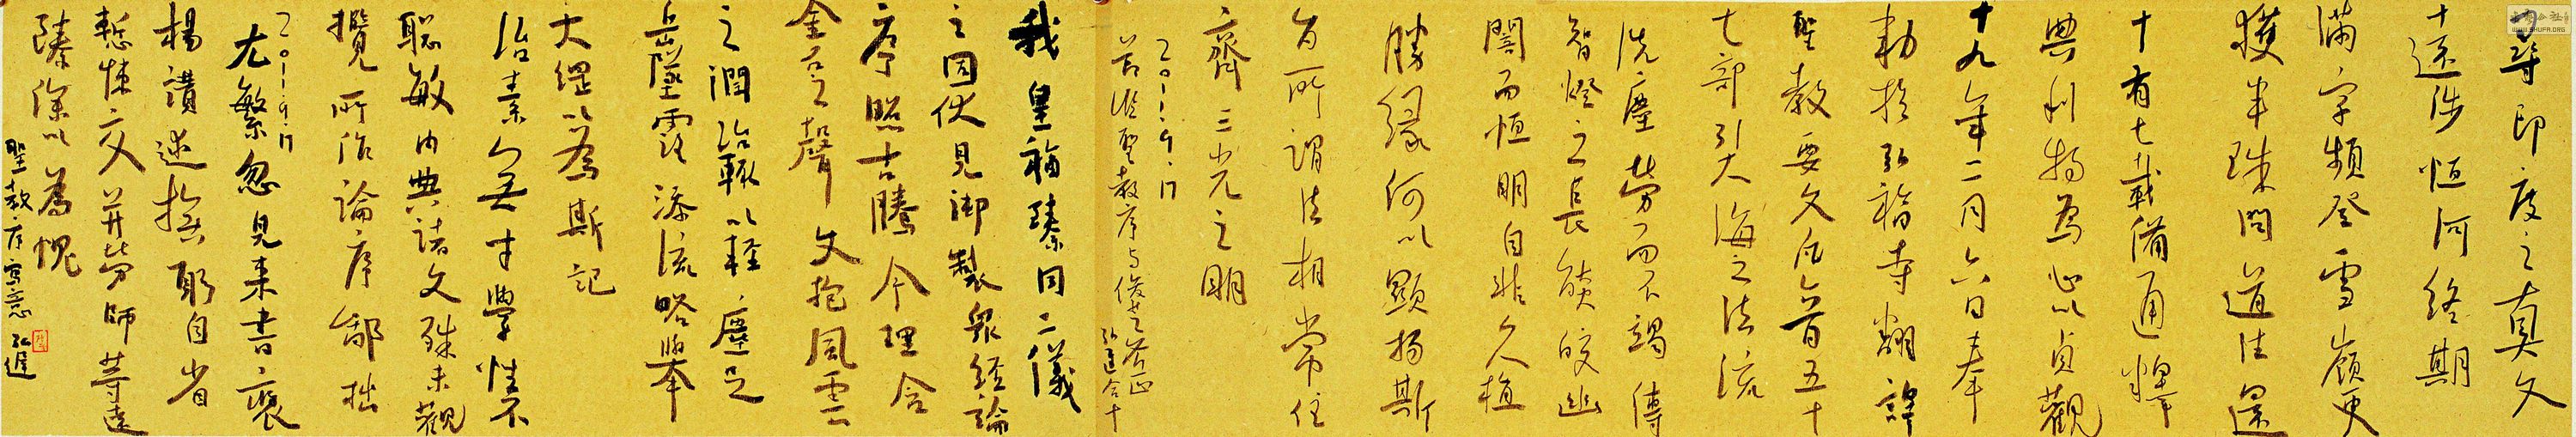 尋印度之真文
十遠涉恒河終期
滿字頻登雪嶺更
獲半珠問道往還
十有七載備通釋
典利物為心以貞觀
十九年二月六日奉
勅於弘福寺翻譯
聖教要文凡六百五十
七部引大海之法流
洗塵勞而不竭傳
智燈之長焰皎幽
闇而恒明自非久植
勝緣何以顯揚斯
旨所謂法相常住
齊三光之明
2011.9.17
臨聖教序与俊
合十
我皇福臻同二儀
之固伏見御製衆經論
序照古騰今理含
金石之聲文抱風雲
之潤治輒以輕塵足
岳墜露添流略舉
大綱以為斯記
治素無才學性不
聰敏内典諸文殊未觀
攬所作論序鄙拙
2011.9.17
尤繁忽見來書褒
揚讚述撫躬自省
慙悚交并勞師等遠
臻深以為愧
聖教序寫意
WWW.SHUFA.ORG